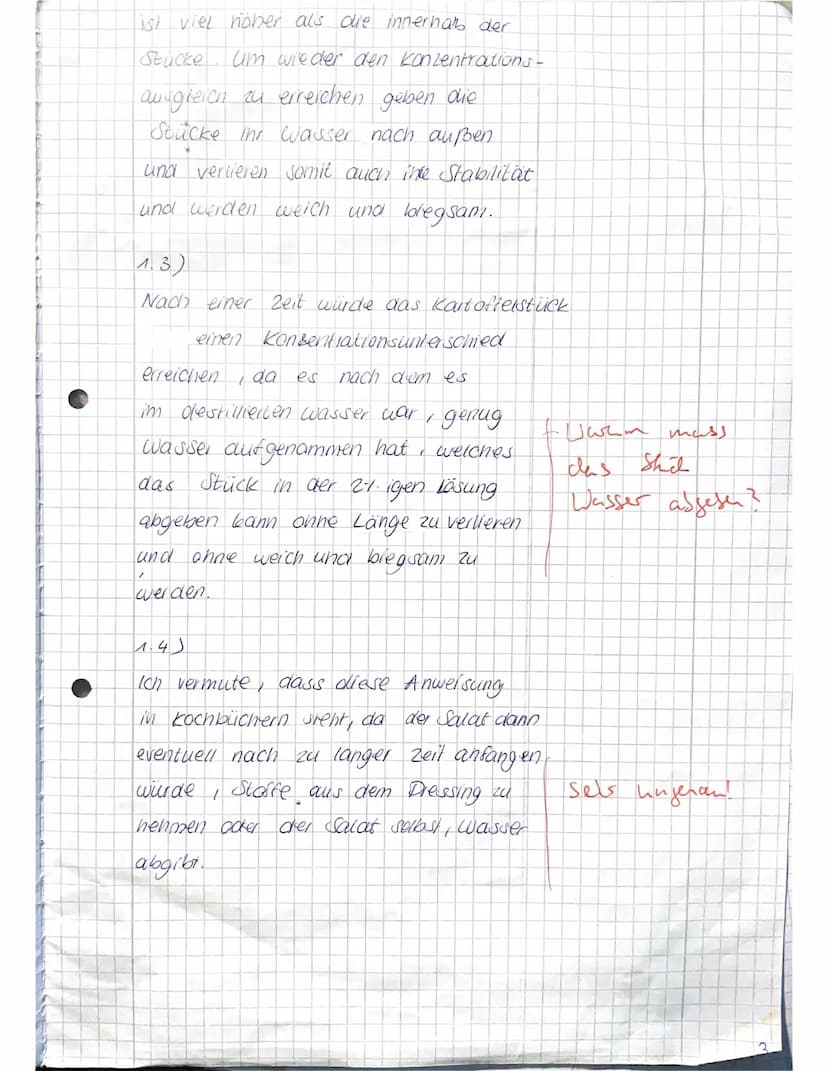 ist viel höher als die innerhalb der
Stücke. Um wieder den Konzentrations-
ausgleich zu erreichen geben die
Stücke ihr Wasser nach außen
und verlieren somit auch ihre Stabilität
und werden weich und biegsam.
1.3)
Nach einer Zeit würde das Kartoffelstück
einen Konzentrationsunterschied
erreichen, da es nach dem es
im destillierten Wasser war, genug
Wasser aufgenommen hat, welches
das Stück in der 2%igen Lösung
abgeben kann ohne Länge zu verlieren
und ohne weich und biegsam zu
werden.
Warum muss
das Stück
Wasser abgeben?
1.4)
Ich vermute, dass diese Anweisung
in Kochbüchern steht, da der Salat dann
eventuell nach zu langer Zeit anfangen
würde, Stoffe aus dem Dressing zu
nehmen oder der Salat selbst, Wasser
abgibt.
sehr ungenau!
3